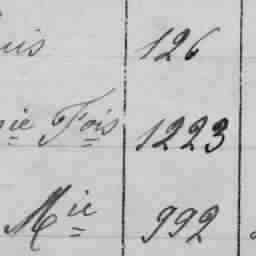 uis 126
ie Fois 1223
Mie 992